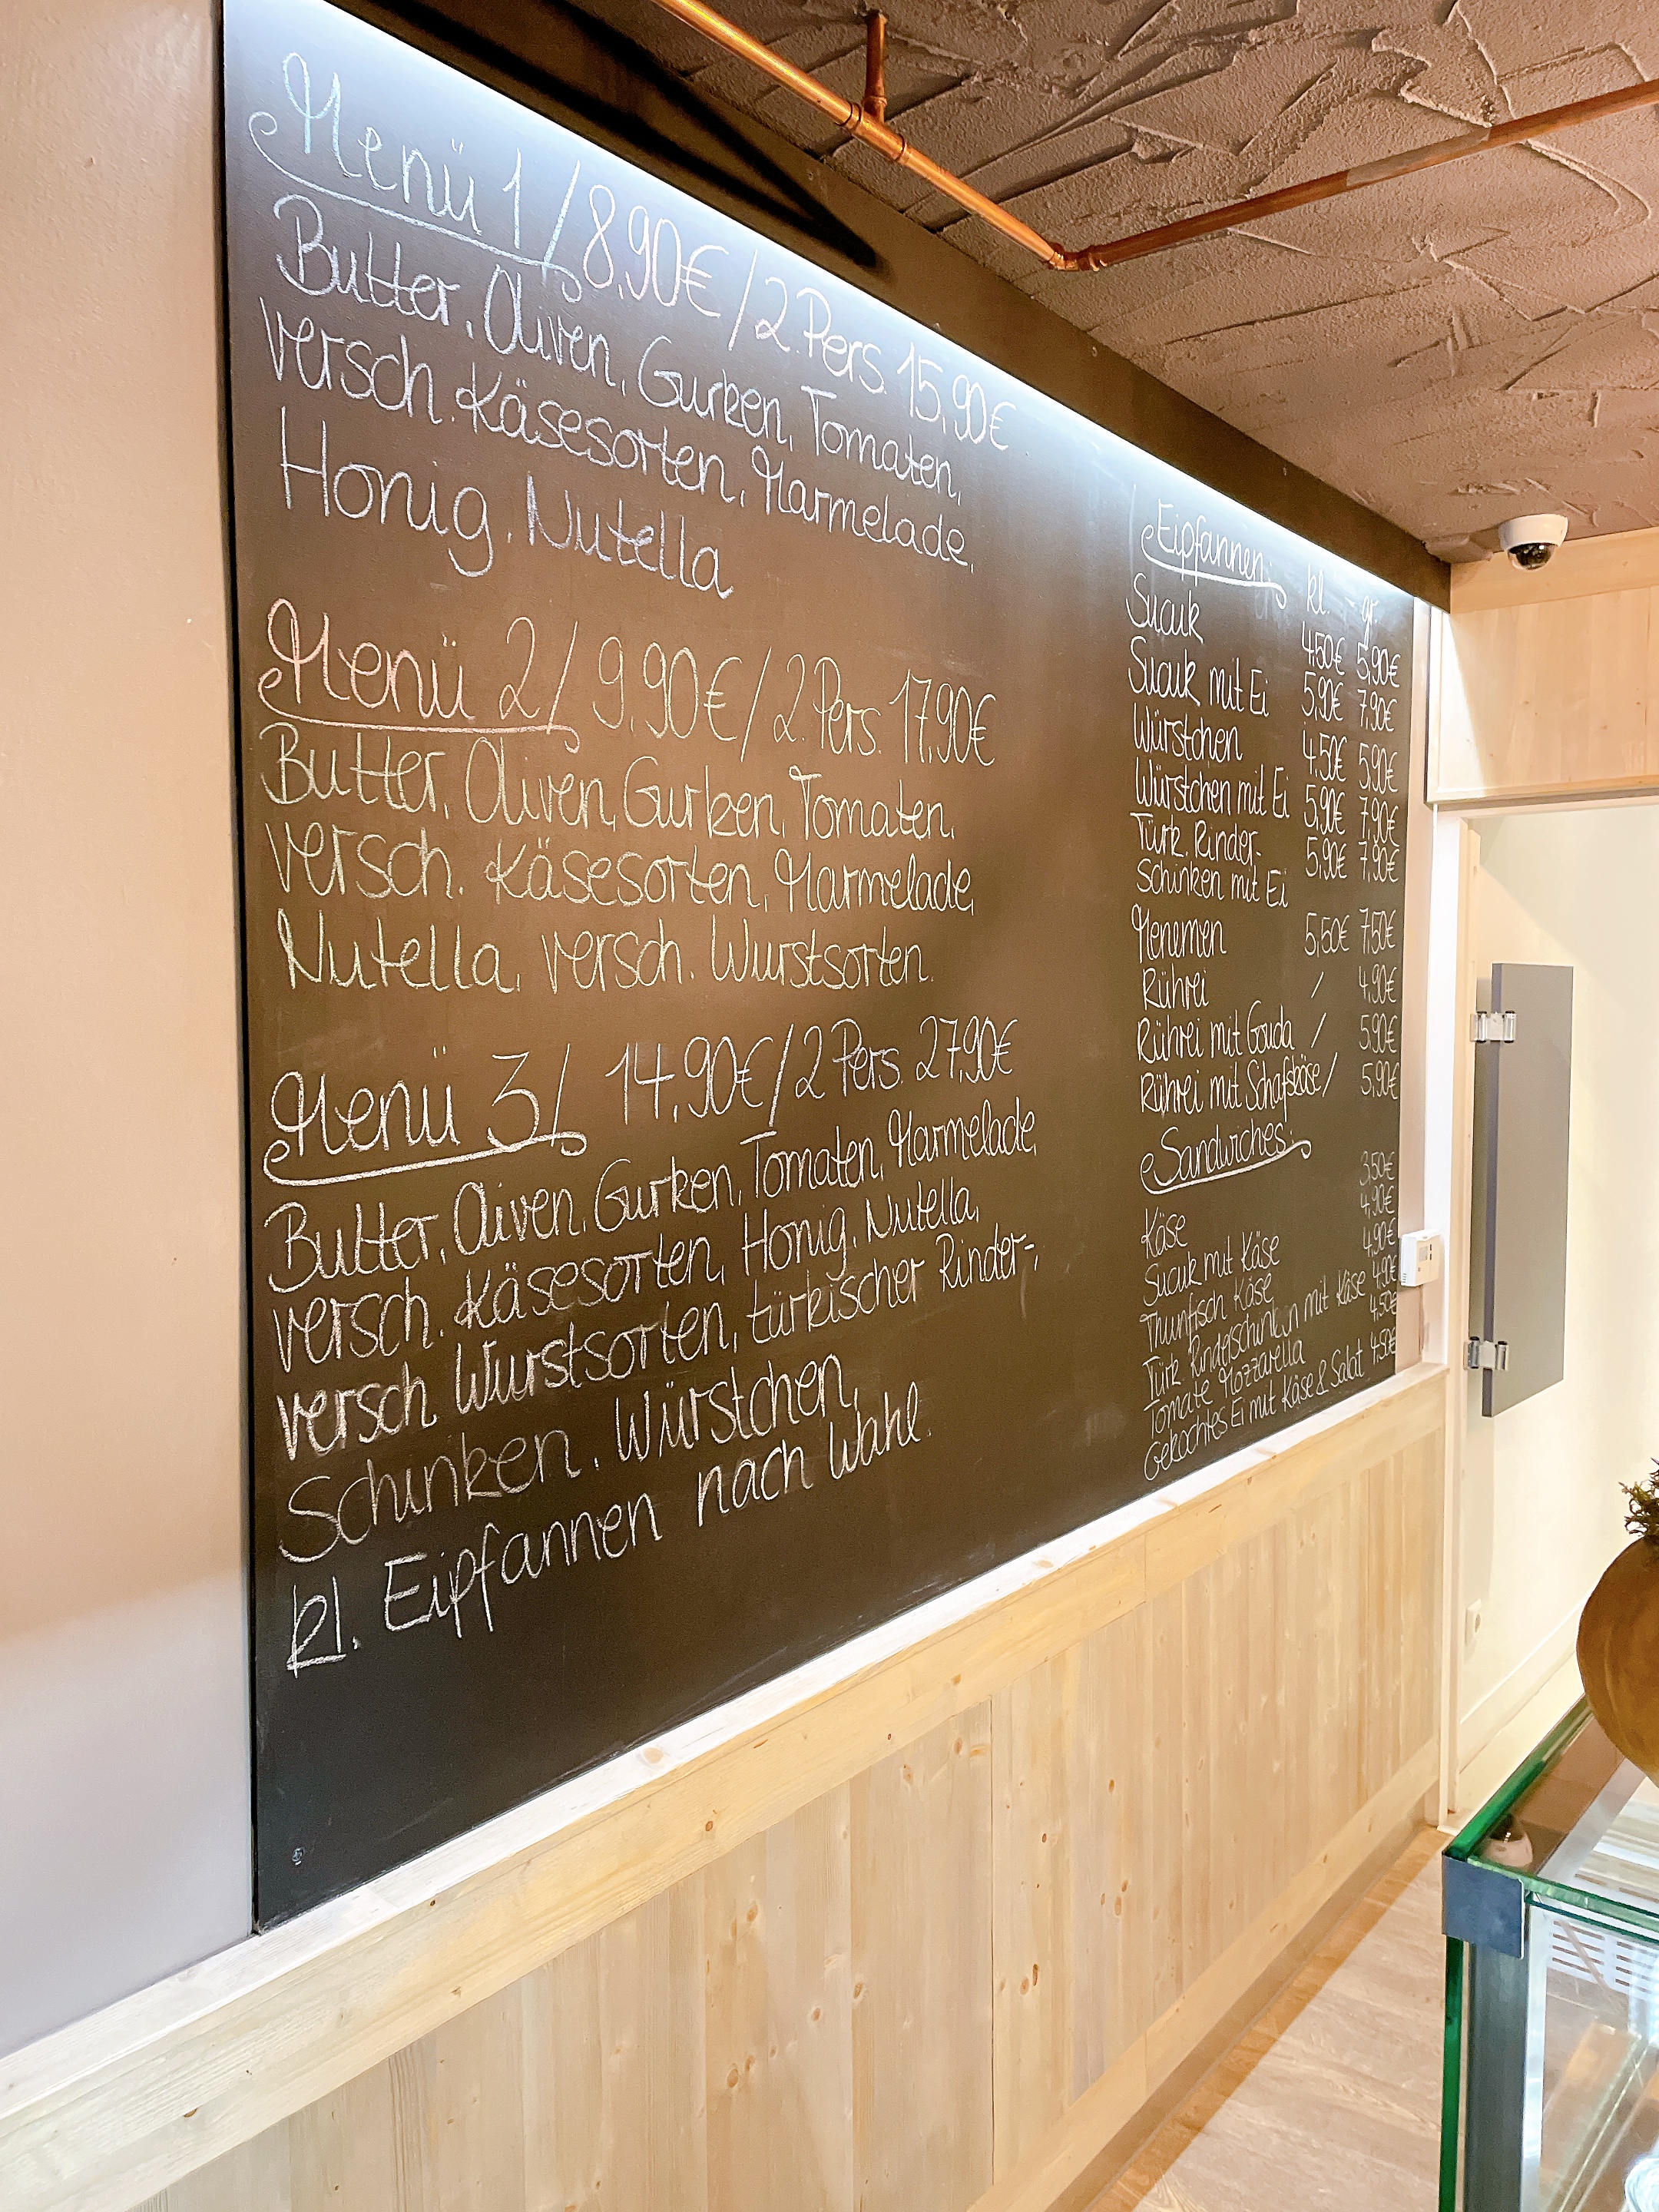 Menü 1 / 8,90€ / 2.Pers. 15,90€
Butter, Oliven, Gurken, Tomaten,
versch. Käsesorten, Marmelade,
Honig, Nutella
Menü 2 / 9,90€ / 2.Pers. 17,90€
Butter, Oliven, Gurken, Tomaten,
versch. Käsesorten, Marmelade,
Nutella, versch. Wurstsorten.
Menü 3 / 14,90€ / 2 Pers. 27,90€
Butter, Oliven, Gurken, Tomaten, Marmelade,
versch. Käsesorten, Honig, Nutella,
versch. Wurstsorten, türkischer Rinder-,
Schinken, Würstchen,
kl. Eipfannen nach Wahl.
Eipfannen: kl. - gr.
Sucuk 4,50€ 5,90€
Sucuk mit Ei 5,90€ 7,90€
Würstchen 4,50€ 5,90€
Würstchen mit Ei 5,90€ 7,90€
Türk. Rinder- 5,90€ 7,90€
schinken mit Ei
Menemen 5,50€ 7,50€
Rührei / 4,90€
Rührei mit Gouda / 5,90€
Rührei mit Schafskäse / 5,90€
Sandwiches:
Käse 3,50€
Sucuk mit Käse 4,90€
Thunfisch Käse 4,90€
Türk Rindelschinken mit Käse 4,90€
Tomate Mozzarella 4,50€
Gekochtes Ei mit Käse & Salat 4,50€